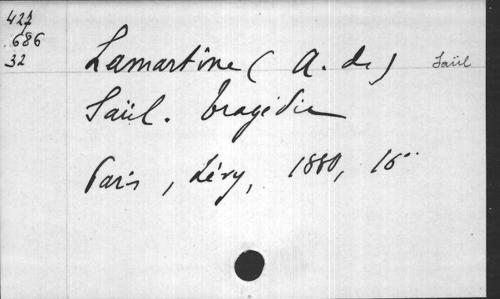 422
686
32
Lamartine (A. de) Saül
Saül. tragédie
Paris, Lévy, 1880, 16°